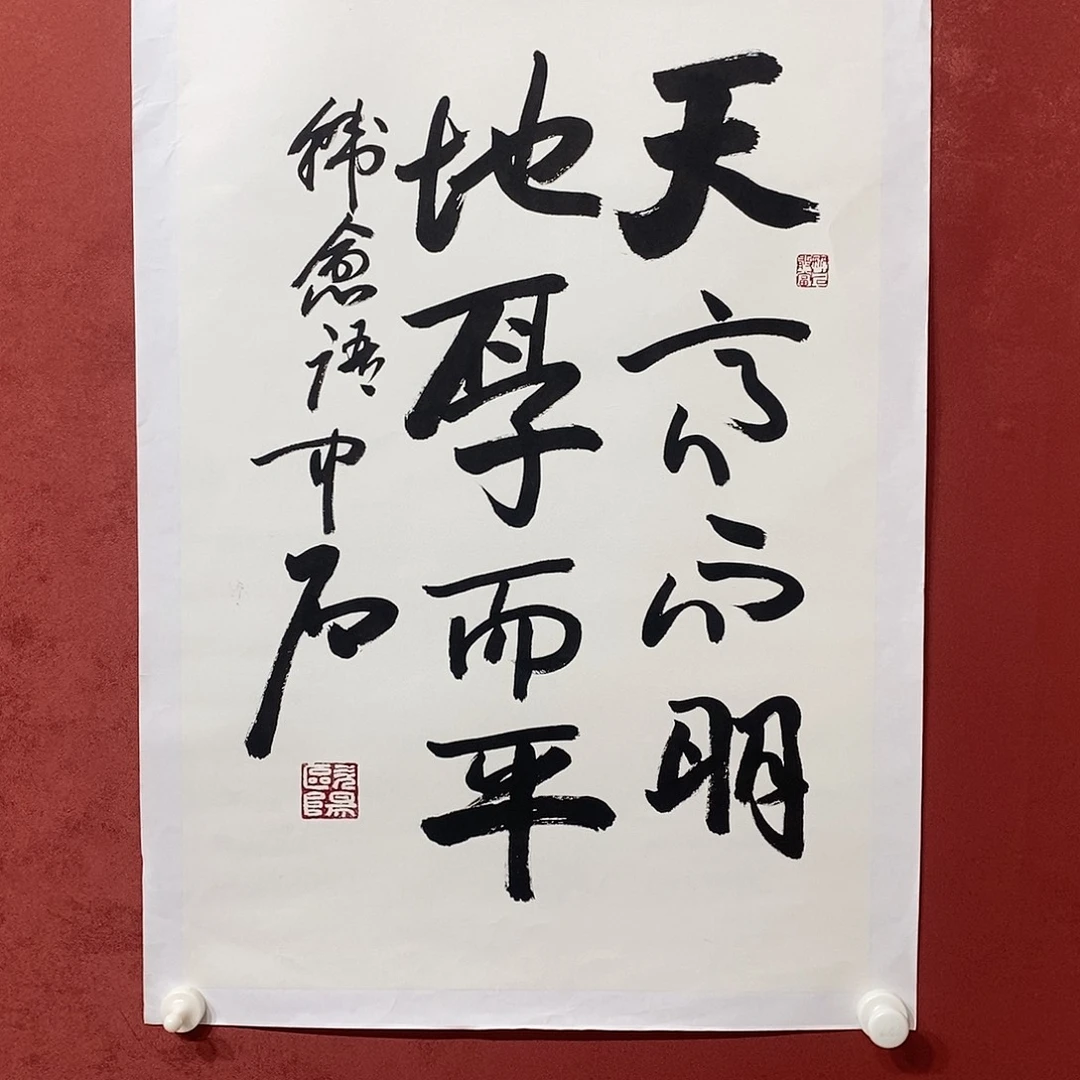 天高而明
地厚而平
韩愈语中石